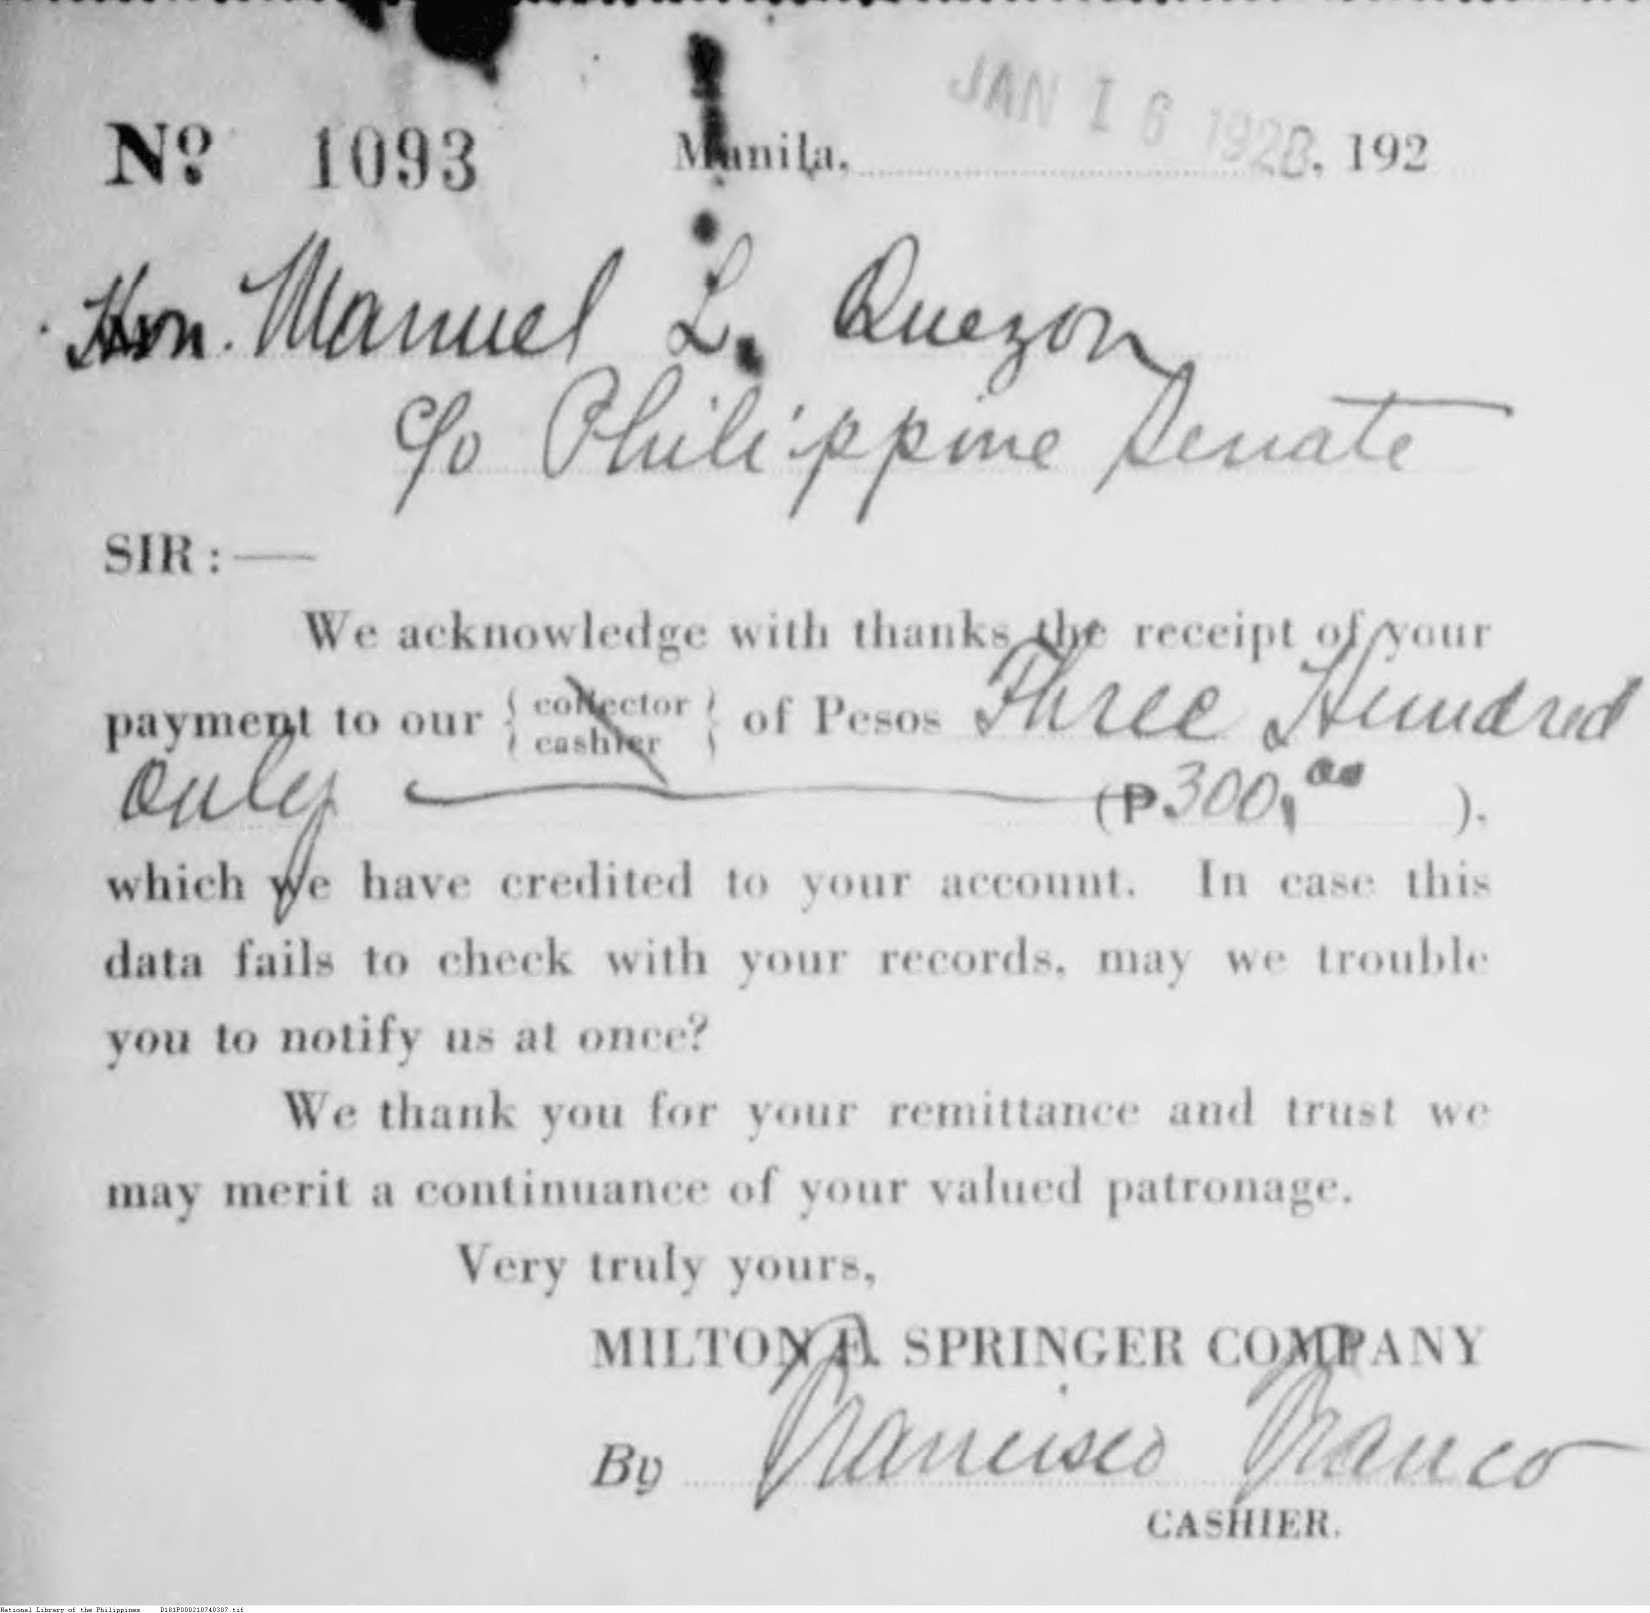 Nº 1093 Manila, JAN 16 1923, 192
Hon. Manuel L. Quezon
c/o Philippine Senate
SIR:—
We acknowledge with thanks the receipt of your
payment to our { collector
cashier } of Pesos Three Hundred
Only — (₱300.00 ).
which we have credited to your account. In case this
data fails to check with your records, may we trouble
you to notify us at once?
We thank you for your remittance and trust we
may merit a continuance of your valued patronage.
Very truly yours,
MILTON E. SPRINGER COMPANY
By Francisco Franco
CASHIER.
National Library of the Philippines D181P000210740307.tif